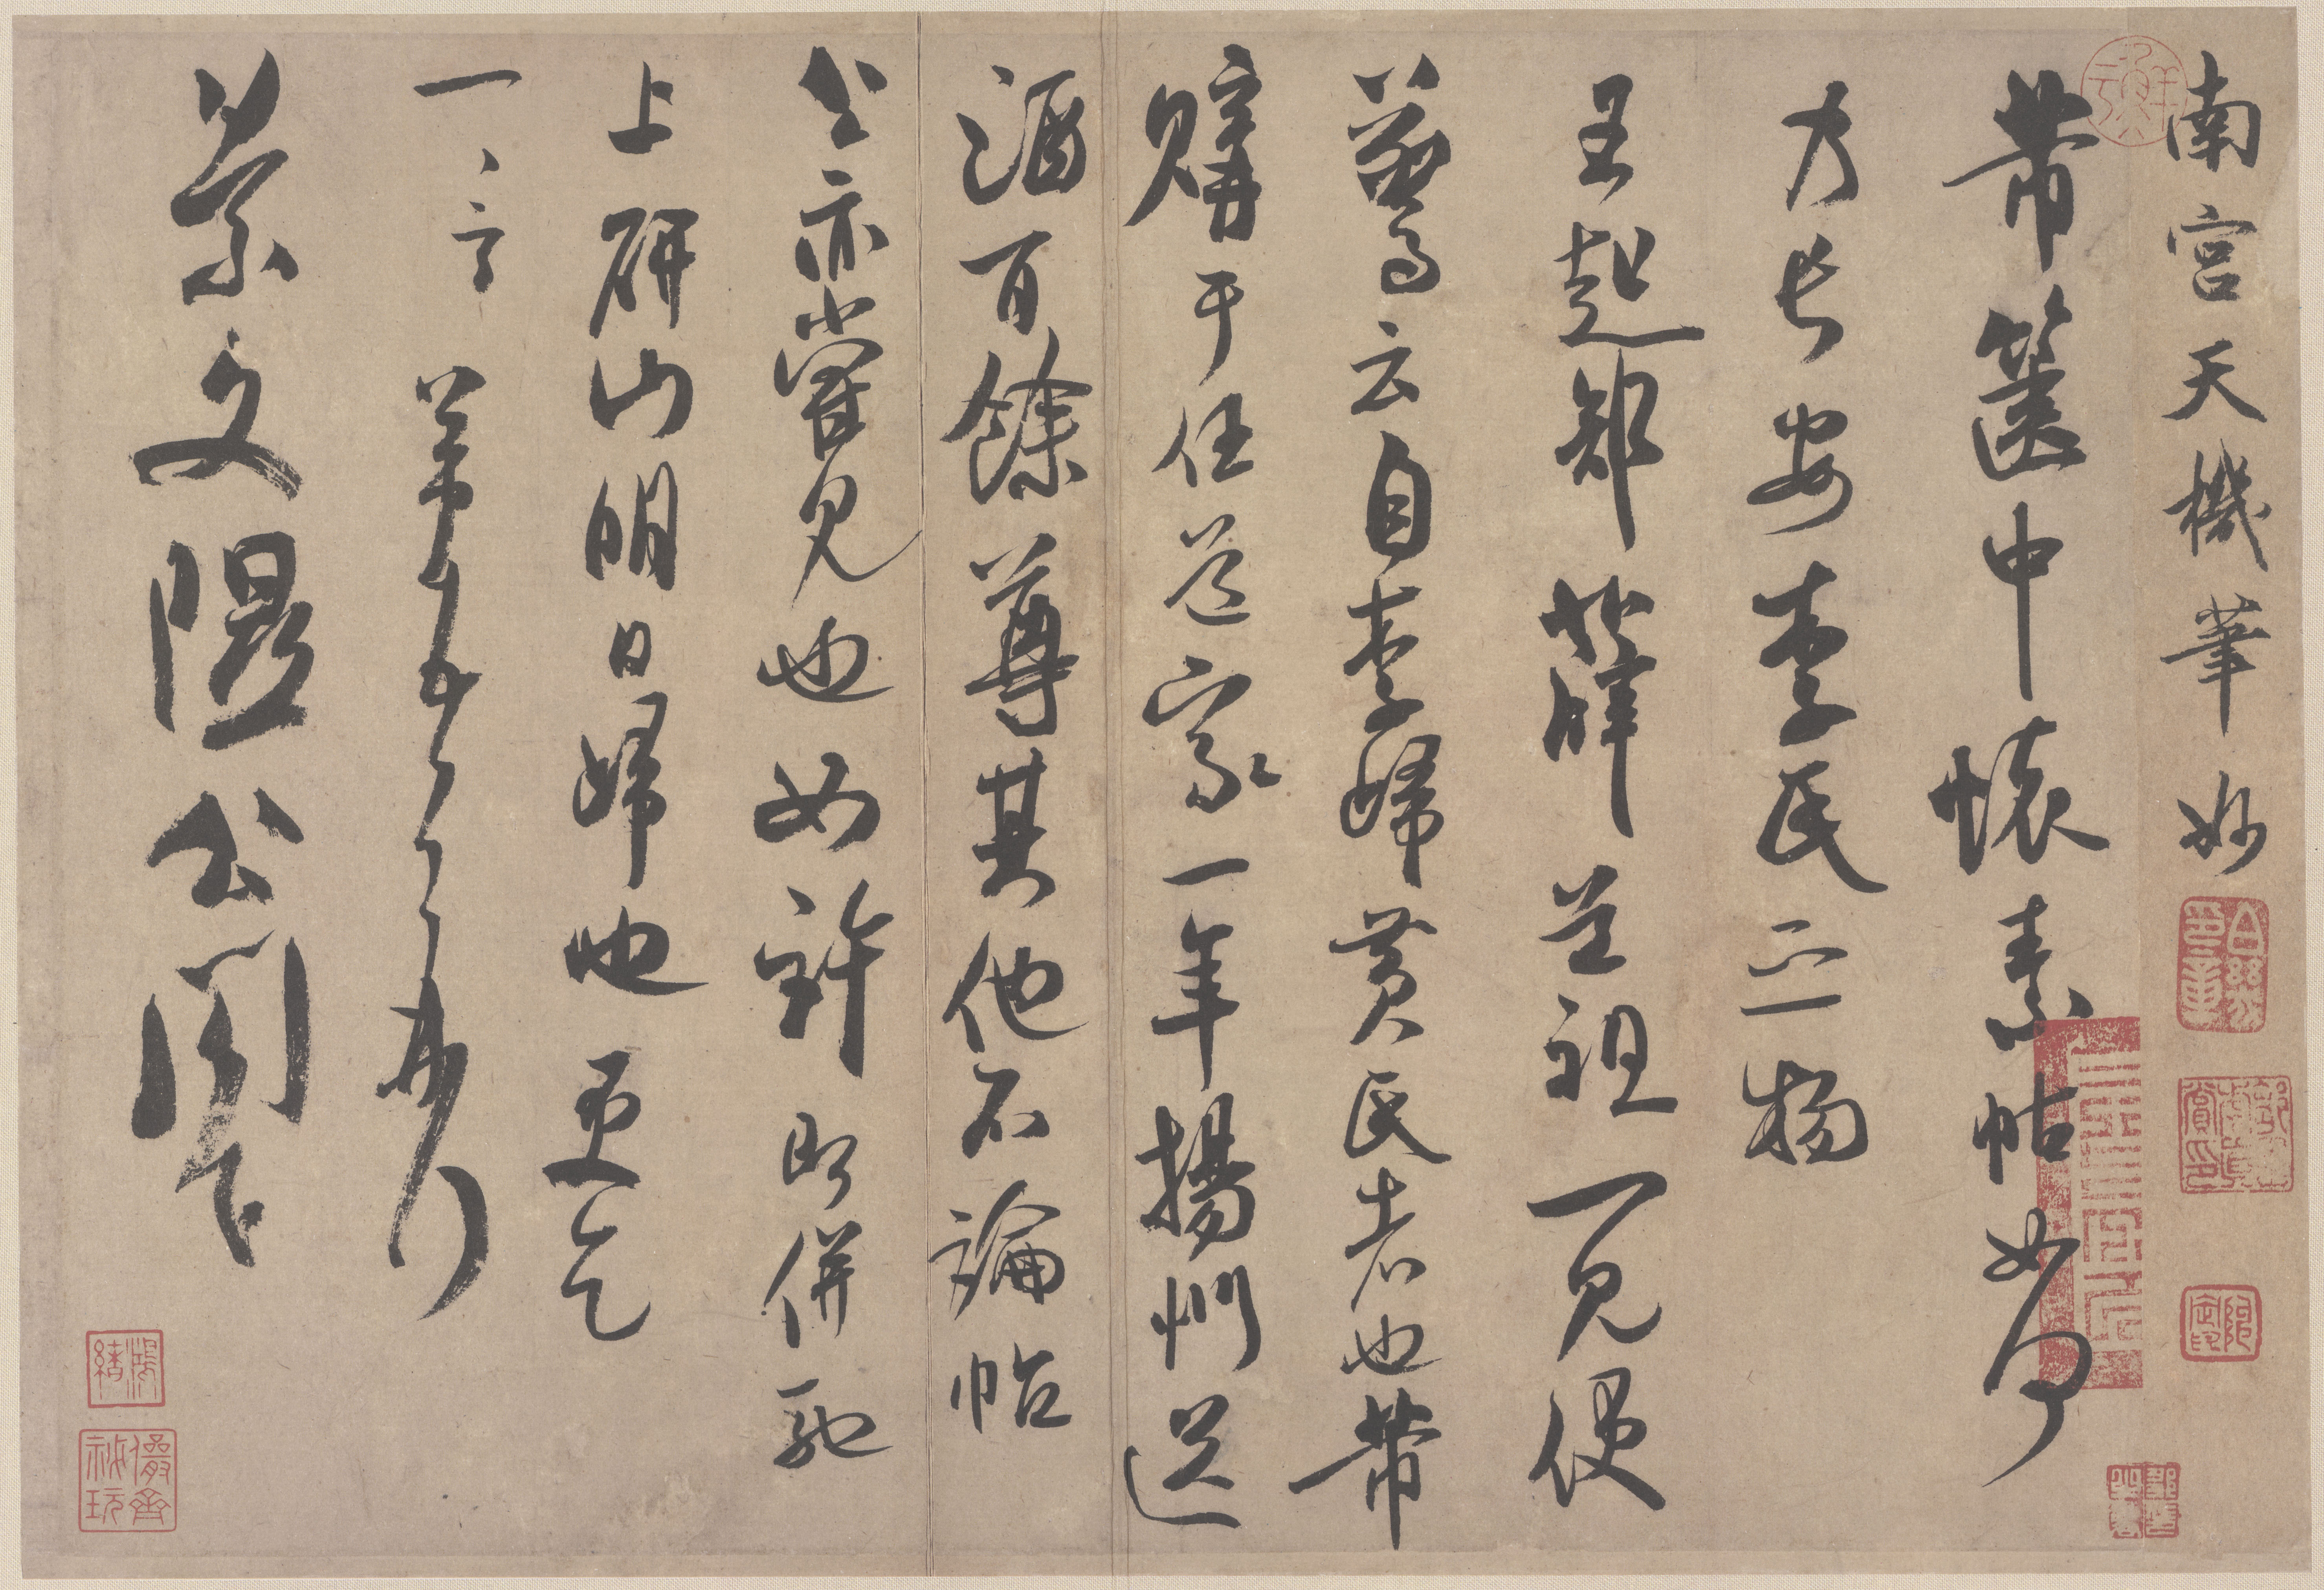 南宮天機筆妙
芾篋中懷素帖如何
乃長安李氏之物
王起部薛道祖一見便
驚云自李歸黃氏者也芾
購于任道家一年揚州送
酒百餘尊其他不論帖
公亦嘗見也如許即併馳
上研山明日歸也更乞
一言芾頓首再拜
景文隰公閤下
鴻緒
儼齋祕玩